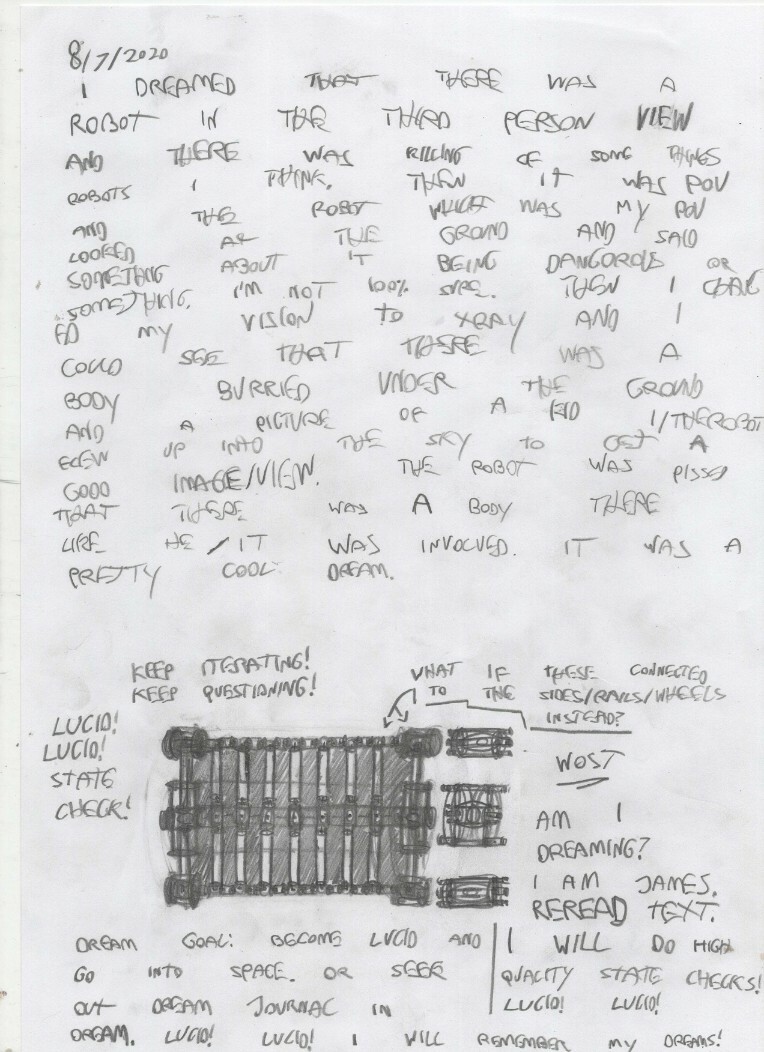 8/7/2020
I DREAMED THAT THERE WAS A
ROBOT IN THE THIRD PERSON VIEW
AND THERE WAS KILLING OF SOME THINGS
ROBOTS I THINK. THEN IT WAS POV
AND THE ROBOT WHICH WAS MY POV
LOOKED AT THE GROUND AND SAID
SOMETHING ABOUT IT BEING DANGOROUS OR
SOMETHING. I'M NOT 100% SURE. THEN I CHANG
ED MY VISION TO XRAY AND I
COULD SEE THAT THERE WAS A
BODY BURRIED UNDER THE GROUND
AND A PICTURE OF A KID I/THEROBOT
FLEW UP INTO THE SKY TO GET A
GOOD IMAGE/VIEW. THE ROBOT WAS PISSED
THAT THERE WAS A BODY THERE
LIKE HE/IT WAS INVOLVED. IT WAS A
PRETTY COOL DREAM.
KEEP ITERATING!
KEEP QUESTIONING!
WHAT IF THESE CONNECTED
TO THE SIDES/RAILS/WHEELS
INSTEAD?
LUCID!
LUCID!
STATE
CHECK!
WOST
AM I
DREAMING?
I AM JAMES.
REREAD TEXT.
DREAM GOAL: BECOME LUCID AND
GO INTO SPACE. OR SEEK
OUT DREAM JOURNAL IN
DREAM. LUCID! LUCID! I WILL REMEMBER MY DREAMS!
I WILL DO HIGH
QUALITY STATE CHECKS!
LUCID! LUCID!